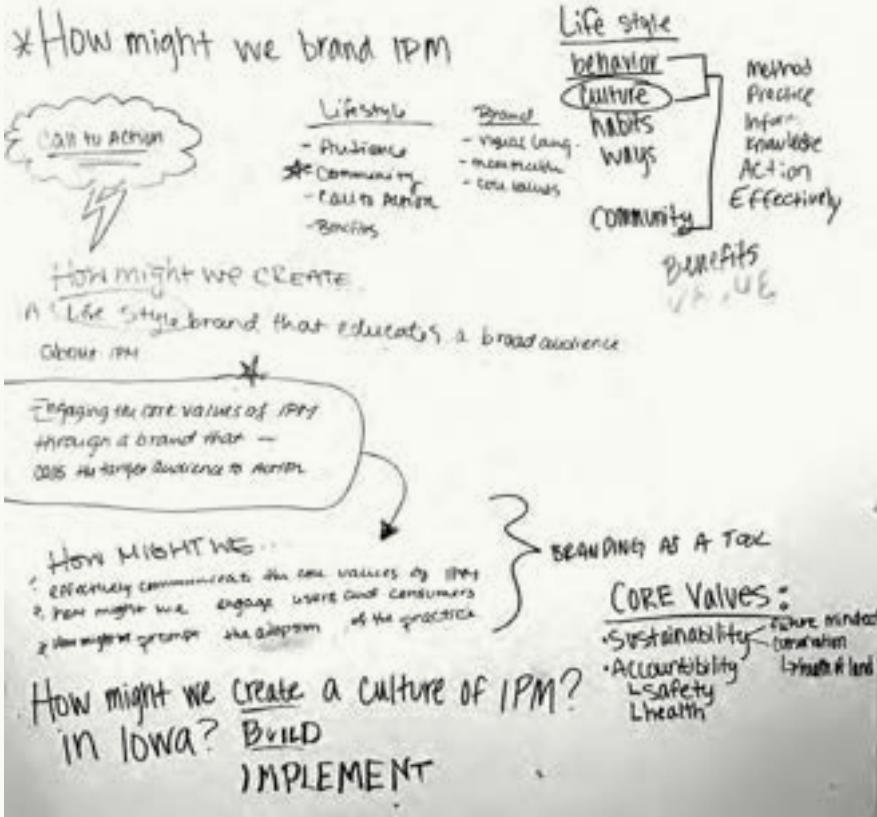 *How might we brand IPM
Call to Action
Lifestyle
- Audience
* Community
- Call to Action
- Benefits
Brand
- visual lang.
- core values
Life style
behavior
culture
habits
ways
community
Method
Practice
Inform
Knowledge
Action
Effectively
Benefits
VALUE
How might we CREATE
A Life Style brand that educates a broad audience
about IPM
Engaging the core values of IPM
through a brand that —
calls the target audience to Action
How MIGHT WE...
effectively communicate the core values of IPM
how might we engage users and consumers
How might we prompt the adoption of the practice
BRANDING AS A TOOL
CORE Values:
• Sustainability
future mindset
conservation
↳ health of land
• Accountibility
↳ safety
↳ health
How might we create a culture of IPM?
in Iowa? BUILD
IMPLEMENT